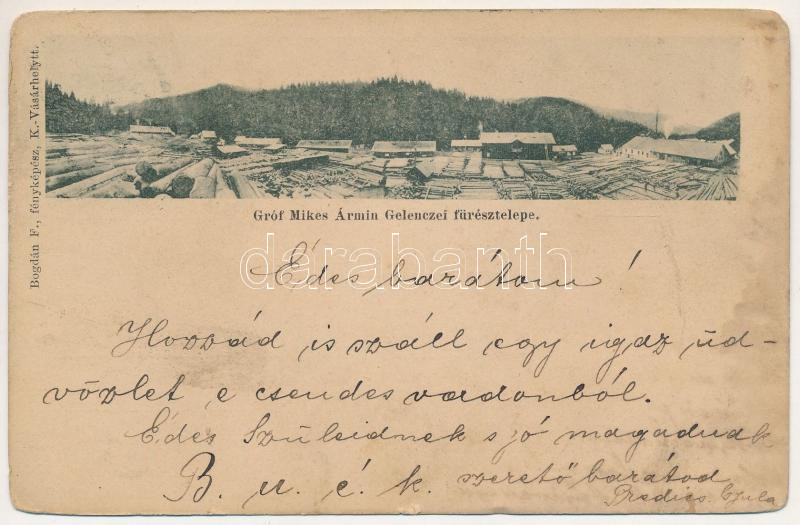 Bogdán F., fényképész, K.-Vásárhelytt.
Gróf Mikes Ármin Gelenczei fürésztelepe.
darabanth
Édes barátom!
Hozzád is száll egy igaz üd-
vözlet e csendes vadonból.
Édes Szüleidnek s jó magadnak
B. u. é. k. szerető barátod
Gyula